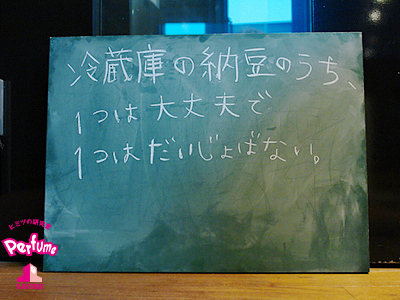 冷蔵庫の納豆のうち、
1つは大丈夫で
1つはだいじょばない。
ヒミツの研究室
Perfume